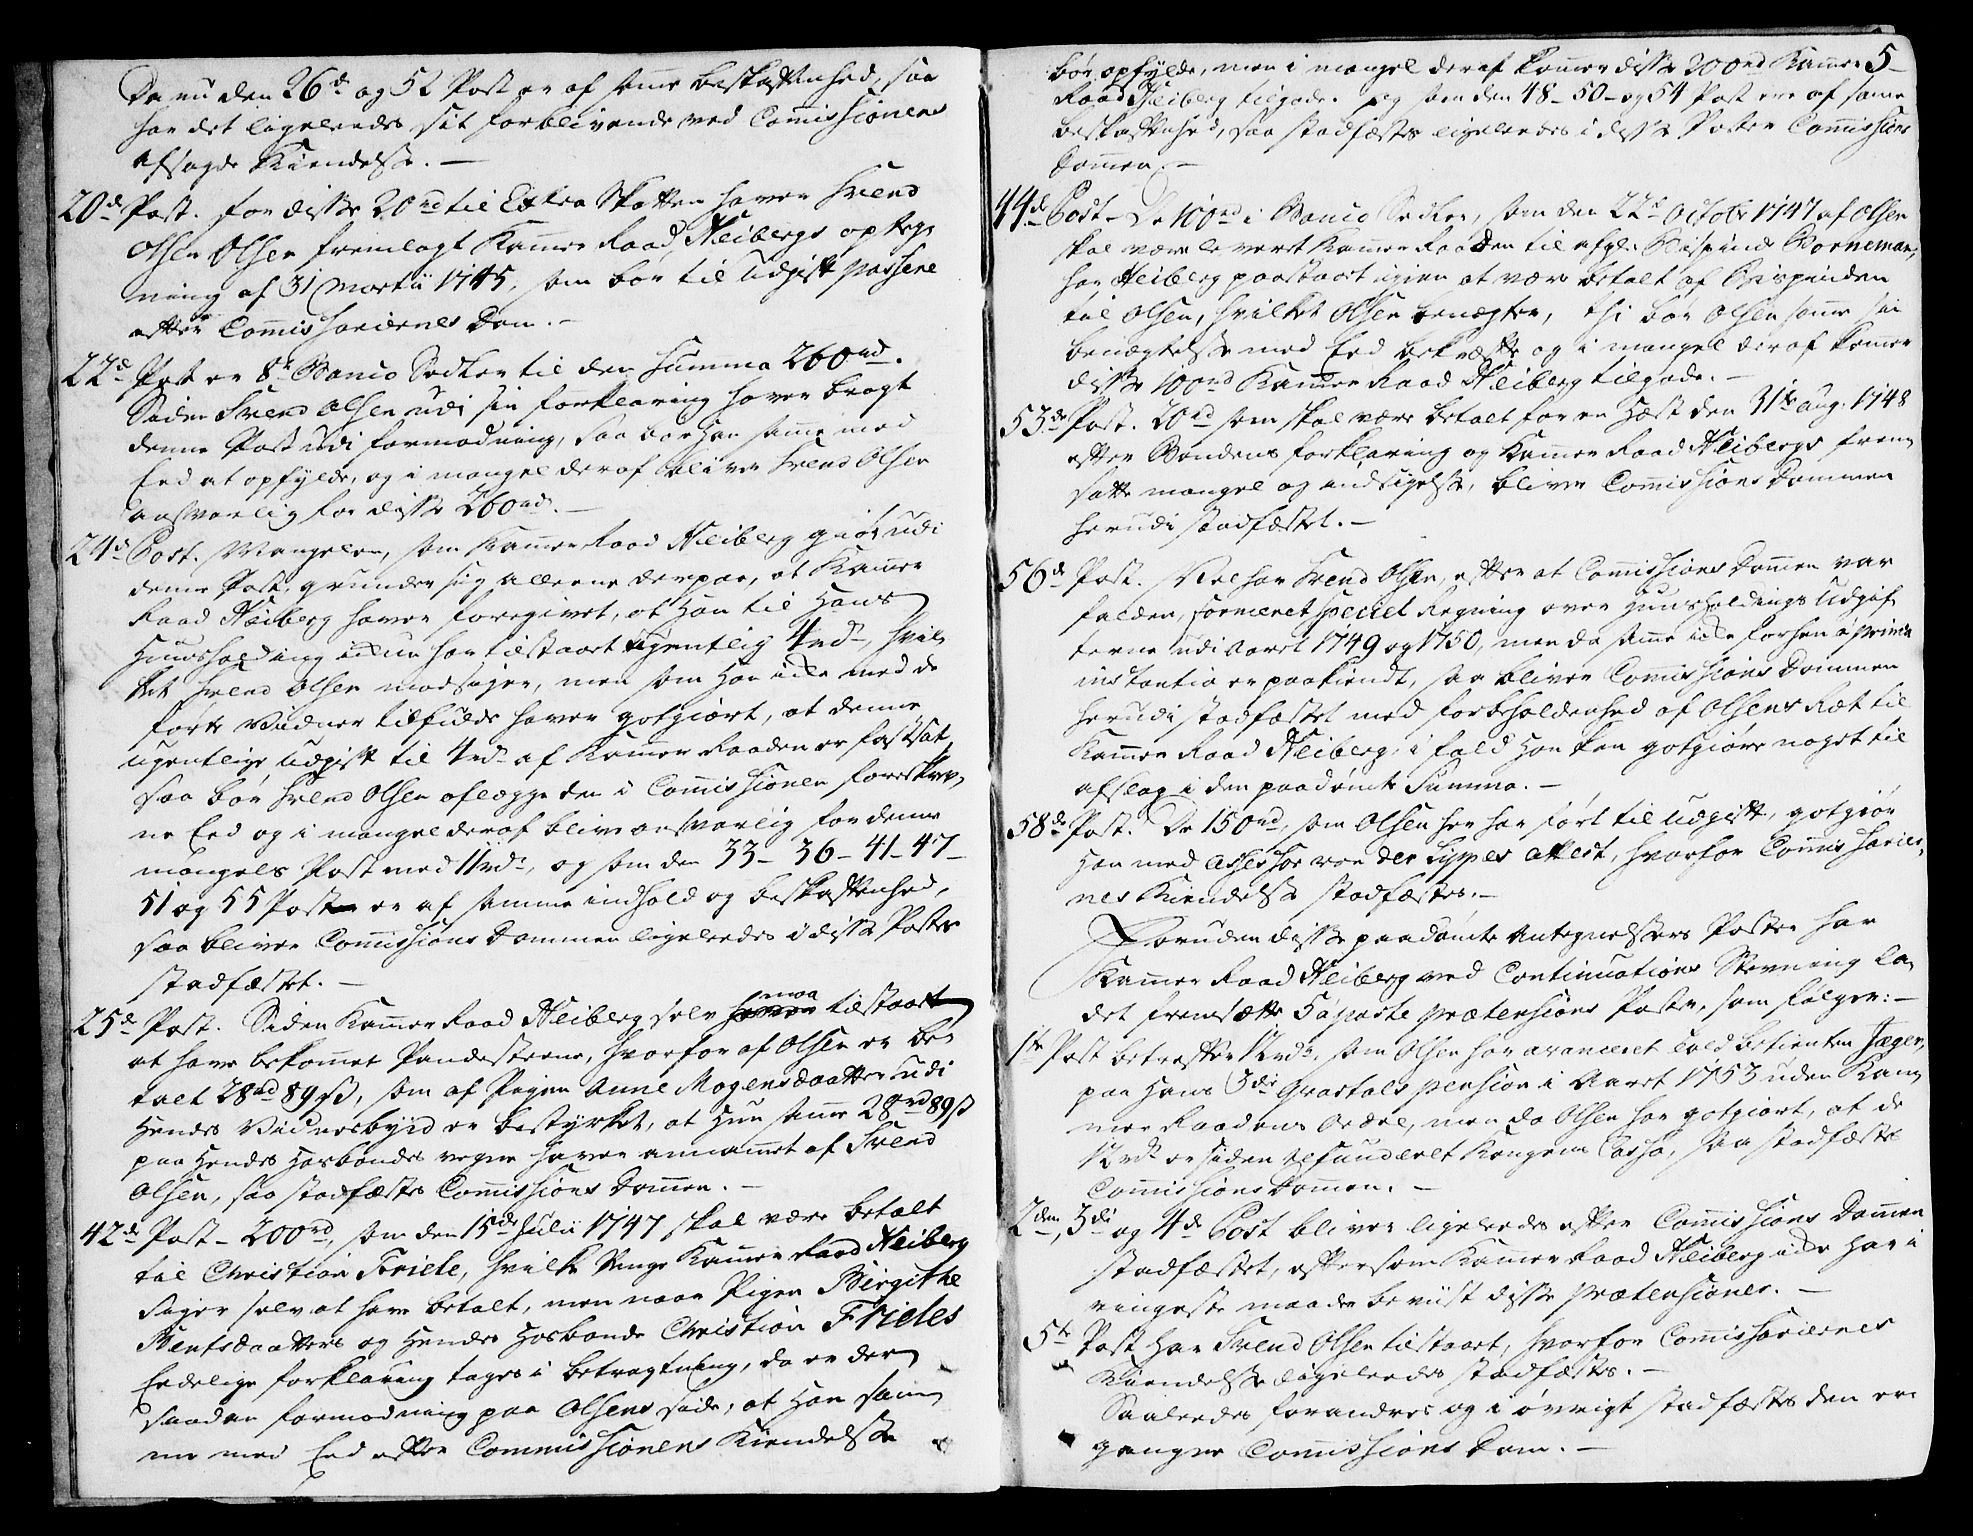 Da nu den 26de og 52 Post er af samme beskaffenhed, saa
har det ligeledes sit forblivende ved Commissionens
afsagde Kiendelse. –
20de Post. for disse 20 rd til Extra Skatten haver Svend
Olsen Olsen fremlagt Kammer Raad Heibergs opteg-
ning af 31 Martii 1745, som bør til Udgift passere
efter Commissariernes Dom. –
22de Post er 8te Banco Sedler til den Summa 260 rd.
Siden Svend Olsen udi sin forklaring haver bragt
denne Post udi formodning, saa bør han samme med
Eed at opfylde, og i mangel deraf bliver Svend Olsen
ansvarlig for disse 260 rd. –
24de Post. Mangelen, som Kammer Raad Heiberg giør udi
denne Post, grunder sig alleene derpaa, at Kammer
Raad Heiberg haver foregivet, at Han til Hans
Huusholdning ikkun har tilstaaet ugentlig 4 rd, hvil-
ket Svend Olsen modsiger, men som Han ikke med de
førte Vidner tilfulde haver gotgiort, at denne
ugentlige Udgift til 4 rd af Kammer Raaden er fastsat,
saa bør Svend Olsen aflægge den i Commissionen foreskrev-
ne Eed og i mangel deraf blive ansvarlig for denne
mangels Post med 11 rd, og som den 33 – 36 – 41 – 47 –
51 og 55 Post er af samme indhold og beskaffenhed,
saa bliver Commissions Dommen ligeledes i disse Poster
stadfæstet. –
25de Post. Siden Kammer Raad Heiberg selv maa tilstaae
at have bekommet Pandesteene, hvorfor af Olsen er be-
talt 28 rd 89 ß, som af Pigen Anne Mogensdaatter udi
Hendes Vidnesbyrd er bestyrket, at Hun samme 28 rd 89 ß
paa Hendes Hosbondes vegne haver annammet af Svend
Olsen, saa stadfæstes Commissions Dommen. –
42de Post – 200 rd, som den 15de Julii 1747 skal være betalt
til Christian Friele, hvilke Penge Kammer Raad Heiberg
siger selv at have betalt, men naar Pigen Birgithe
Bentsdaatters og Hendes Hosbonde Christian Frieles
Eedelige forklaring tages i betragtning, da er der
saadan formodning paa Olsens side, at Han sam-
me med Eed efter Commissionens Kiendelse
5
bør opfylde, men i mangel deraf kommer disse 200 rd Kammer
Raad Heiberg tilgode. og som den 48 – 50 – og 54 Post ere af samme
beskaffenhed, saa stadfæstes ligeledes i disse Poster Commissions
Dommen. –
44de Post – De 100 rd i Banco Sedler, som den 22de Octobr 1747 af Olsen
skal være leveret Kammer Raaden til afgl. Bispinde Bornemann,
har Heiberg paastaaet igien at være betalt af Bispinden
til Olsen, hvilket Olsen benægter, thi bør Olsen samme sin
benægtelse med Eed bekræfte og i mangel deraf kommer
disse 100 rd Kammer Raad Heiberg tilgode. –
53de Post. 20 rd som skal være betalt for en Hest den 31te Aug. 1748
efter Bondens forklaring og Kammer Raad Heibergs frem-
satte mangel og indsigelse, bliver Commissions Dommen
herudi stadfæstet. –
56de Post. Vel har Svend Olsen, efter at Commissions Dommen var
falden, formeret speciel Regning over Huusholdnings Udgif-
terne udi Aaret 1749 og 1750, men da samme ikke forhen a prima
instantia er paakiendt, saa bliver Commissions Dommen
herudi stadfæstet med forbeholdenhed af Olsens Ræt til
Kammer Raad Heiberg, i fald Han kan gotgiøre noget til
afslag i den paadømte Summa. –
58de Post. De 150 rd, som Olsen her har ført til udgift, gotgiør
Han med Assessor von der Lyppes Attest, hvorfor Commissarier-
nes Kiendelse stadfæstes. –
Foruden disse paadømte Antegnelsers Poster har
Kammer Raad Heiberg ved Continuations Stevning la-
det fremsætte 5 aparte prætensions Poster, som følger: –
1te Post betreffer 12 rd, som Olsen har avanceret Told betienten Jæger,
paa Hans 3die Qvartals pension i Aaret 1753 uden Kam-
mer Raadens Ordre, men da Olsen har gotgiort, at de
12 rd er siden refunderet Kongens Cassa, saa stadfæstes
Commissions Dommen. –
2den, 3die og 4de Post bliver ligeledes efter Commissions Dommen
stadfæstet, eftersom Kammer Raad Heiberg ikke har i
ringeste maade beviist disse prætensioner. –
5te Post har Svend Olsen tilstaaet, hvorfor Commissariernes
Kiendelse ligeledes stadfæstes. –
Saaledes forandres og i øvrigt stadfæstes den er-
gangne Commissions Dom. –